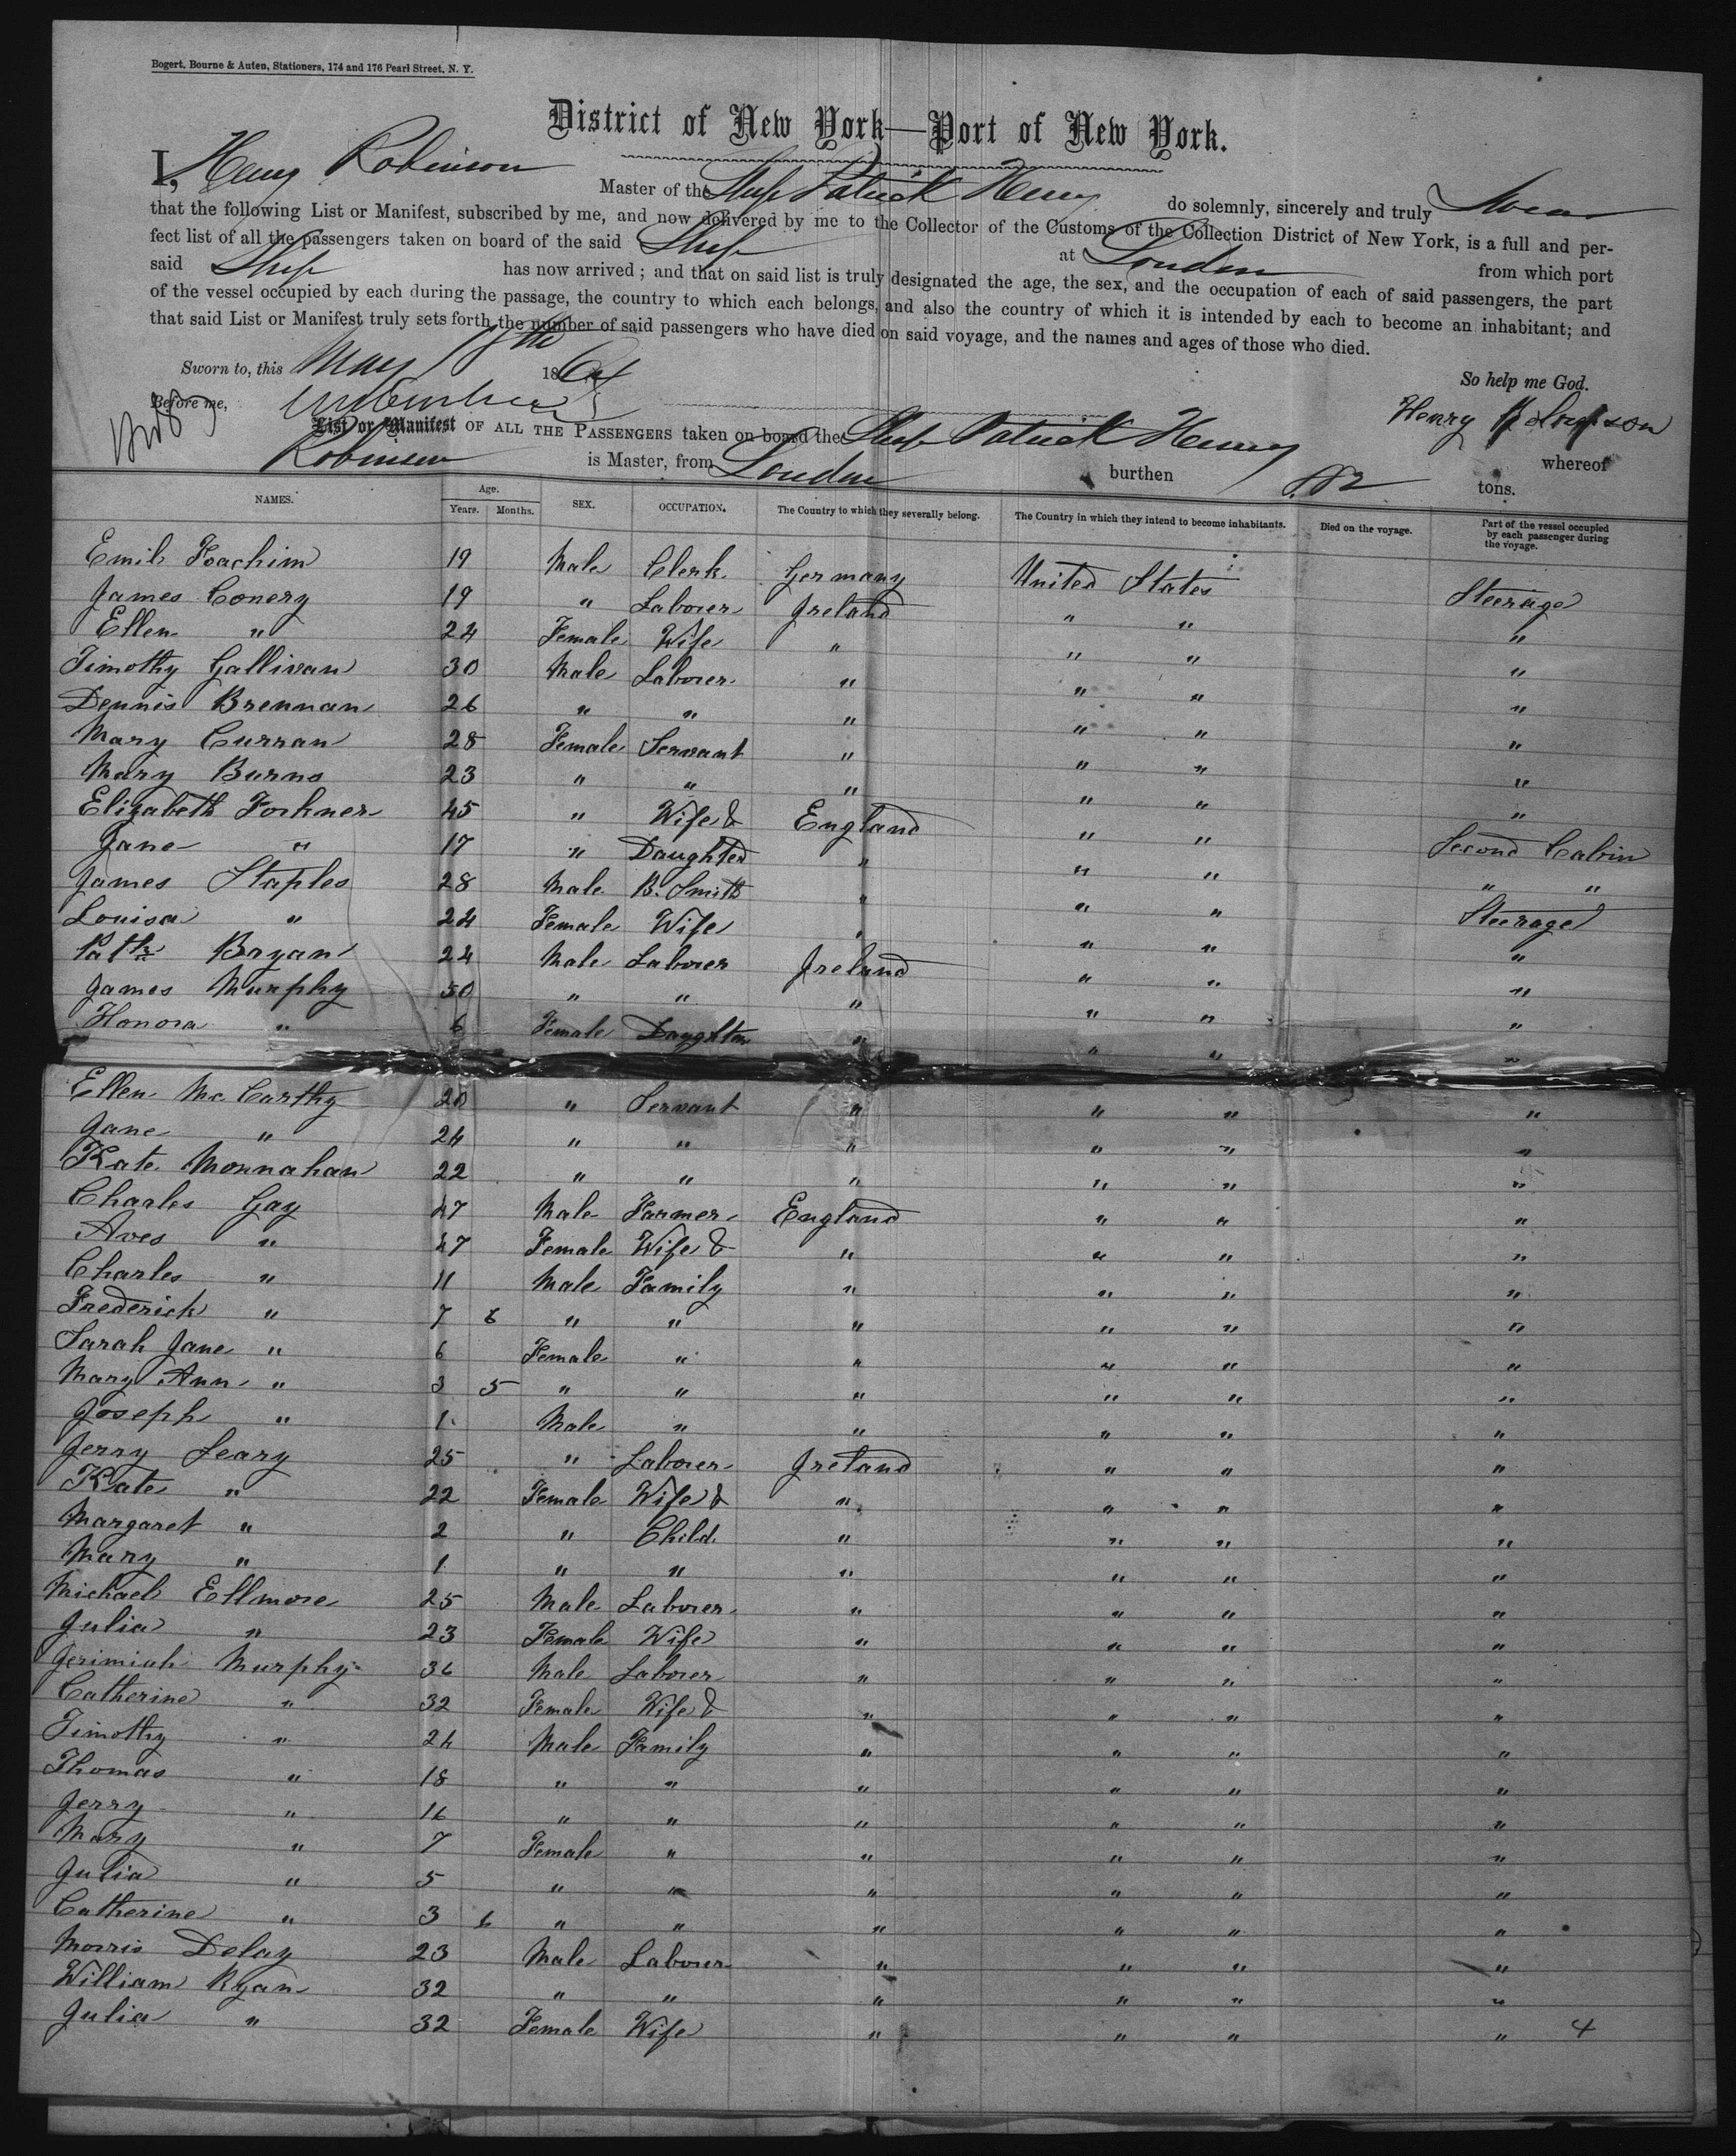 Bogert, Bourne & Auten, Stationers, 174 and 176 Pearl Street, N. Y.
District of New York—Port of New York.
I, Henry Robinson Master of the Ship Patrick Henry do solemnly, sincerely and truly Swear
that the following List or Manifest, subscribed by me, and now delivered by me to the Collector of the Customs of the Collection District of New York, is a full and per-
fect list of all the passengers taken on board of the said Ship at London from which port
said Ship has now arrived; and that on said list is truly designated the age, the sex, and the occupation of each of said passengers, the part
of the vessel occupied by each during the passage, the country to which each belongs, and also the country of which it is intended by each to become an inhabitant; and
that said List or Manifest truly sets forth the number of said passengers who have died on said voyage, and the names and ages of those who died.
Sworn to, this May 18th 1864 So help me God.
Before me, Henry Robinson
List or Manifest OF ALL THE PASSENGERS taken on board the Ship Patrick Henry whereof
Robinson is Master, from London burthen 882 tons.
NAMES. Age. Years. Months. SEX. OCCUPATION. The Country to which they severally belong. The Country in which they intend to become inhabitants. Died on the voyage. Part of the vessel occupied by each passenger during the voyage.
Emil Joachim 19 Male Clerk Germany United States Steerage
James Conery 19 " Laborer Ireland " " "
Ellen " 24 Female Wife " " " "
Timothy Gallivan 30 Male Laborer " " " "
Dennis Brennan 26 " " " " " "
Mary Curran 28 Female Servant " " " "
Mary Burns 23 " " " " " "
Elizabeth Forkner 45 " Wife & England " " Second Cabin
Jane " 17 " Daughter " " " " "
James Staples 28 Male B. Smith " " " Steerage
Louisa " 24 Female Wife " " " "
Patk Bryan 24 Male Laborer Ireland " " "
James Murphy 50 " " " " " "
Honora " 6 Female Daughter " " " "
Ellen Mc Carthy 20 " Servant " " " "
Jane " 24 " " " " " "
Kate Monnahan 22 " " " " " "
Charles Gay 47 Male Farmer England " " "
Aves " 47 Female Wife & " " " "
Charles " 11 Male Family " " " "
Frederick " 7 6 " " " " " "
Sarah Jane " 6 Female " " " " "
Mary Ann " 3 5 " " " " " "
Joseph " 1 Male " " " " "
Jerry Leary 25 " Laborer Ireland " " "
Kate " 22 Female Wife & " " " "
Margaret " 2 " Child " " " "
Mary " 1 " " " " " "
Michael Ellmore 25 Male Laborer " " " "
Julia " 23 Female Wife " " " "
Jerimiah Murphy 36 Male Laborer " " " "
Catherine " 32 Female Wife & " " " "
Timothy " 24 Male Family " " " "
Thomas " 18 " " " " " "
Jerry " 16 " " " " " "
Mary " 7 Female " " " " "
Julia " 5 " " " " " "
Catherine " 3 6 " " " " " "
Morris Delay 23 Male Laborer " " " "
William Ryan 32 " " " " " "
Julia " 32 Female Wife " " " " 4